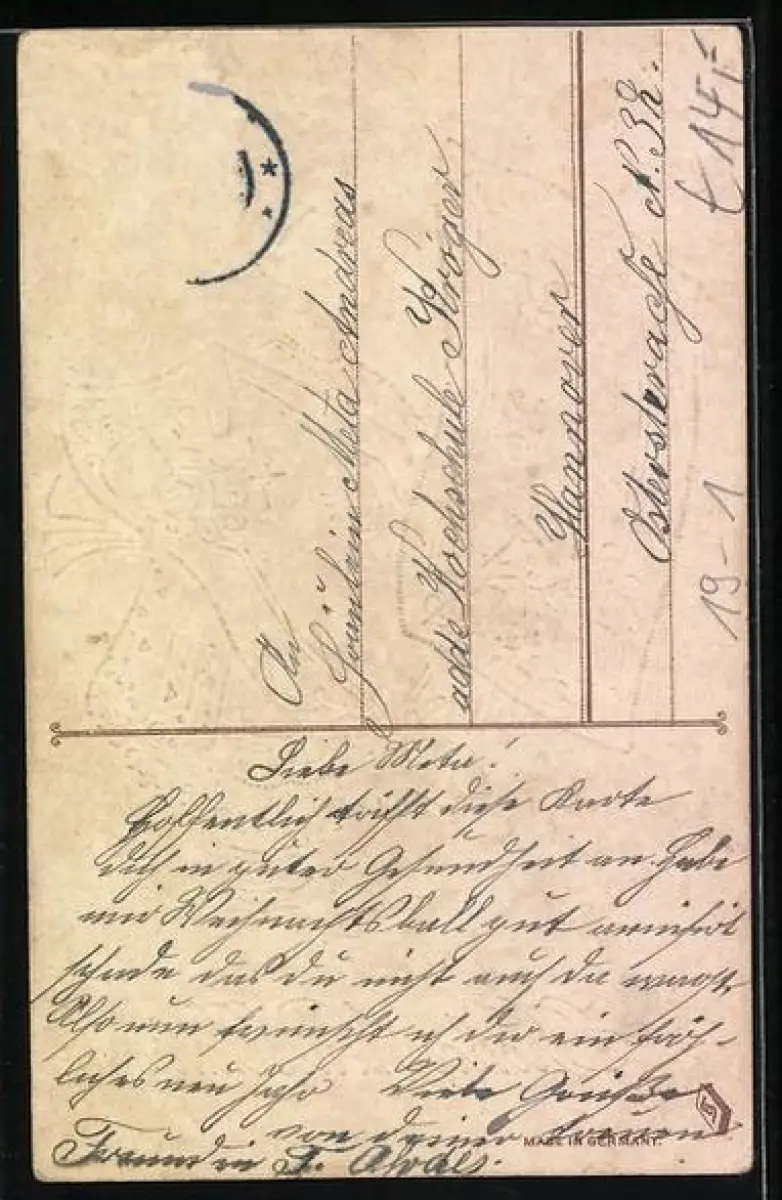 An
Fräulein Meta Andreas
adde Kochschule Kröger
Hannover
Osterstraße N. 32.
19-1
€ 14,-
Liebe Meta!
Hoffentlich trifft diese Karte
dich in guter Gesundheit an. Habe
mir Weihnachtsball gut amüsirt
schade das du nicht auch da warst.
Also nun wünscht ich dir ein fröh-
liches neu Jahr Viele Grüße
von deiner treuen
Freundin
MADE IN GERMANY.